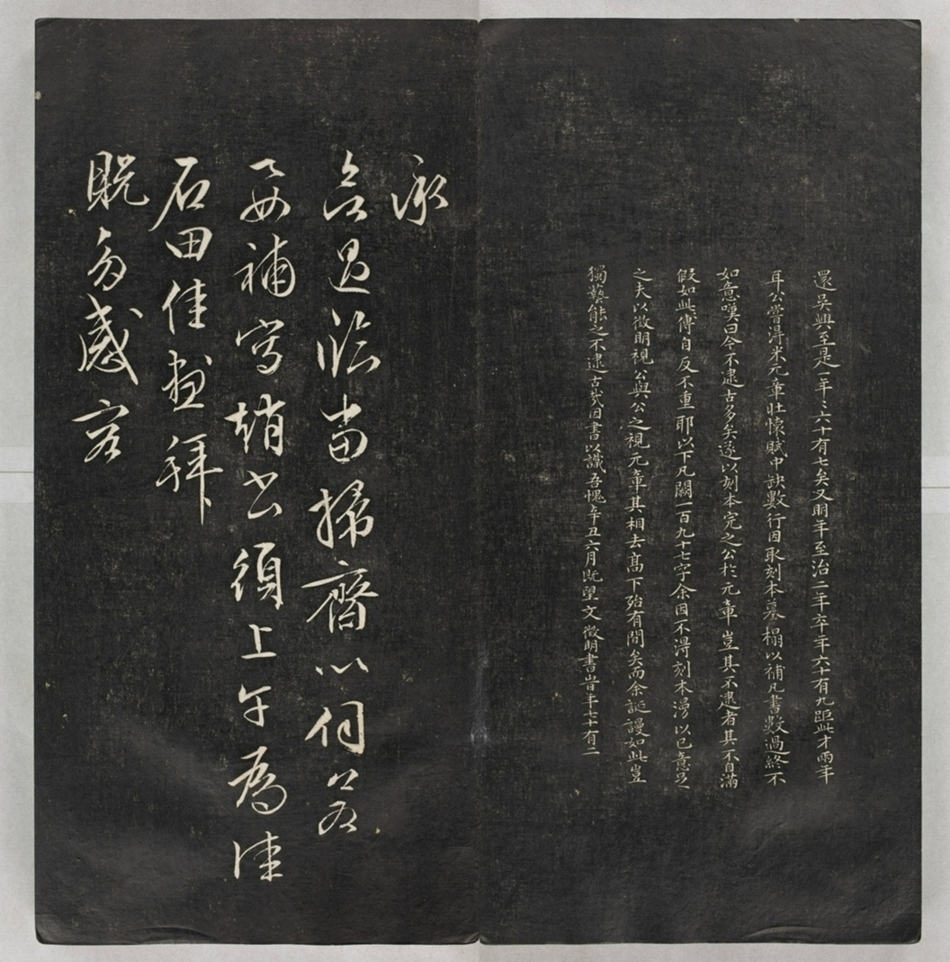 還吳興至是一年六十有七矣又明年至治二年卒年六十有九距此才兩年
耳公嘗得米元章壯懷賦中缺數行因取刻本摹榻以補凡書數過終不
如意嘆曰今不逮古多矣遂以刻本完之公於元章豈其不逮者其不自滿
假如此傳自反不重耶以下凡闕一百九十七字余因不得刻本湯以己意足
之夫以徵明視公與公之視元章其相去高下殆有間矣而余誕謾如此豈
獨藝能之不逮古哉因書以識吾愧辛丑六月既望文徵明書時年七十有二
承
過臨當掃齋以伺若
要補寫趙書須上午為佳
石田佳畫拜
貺多感容